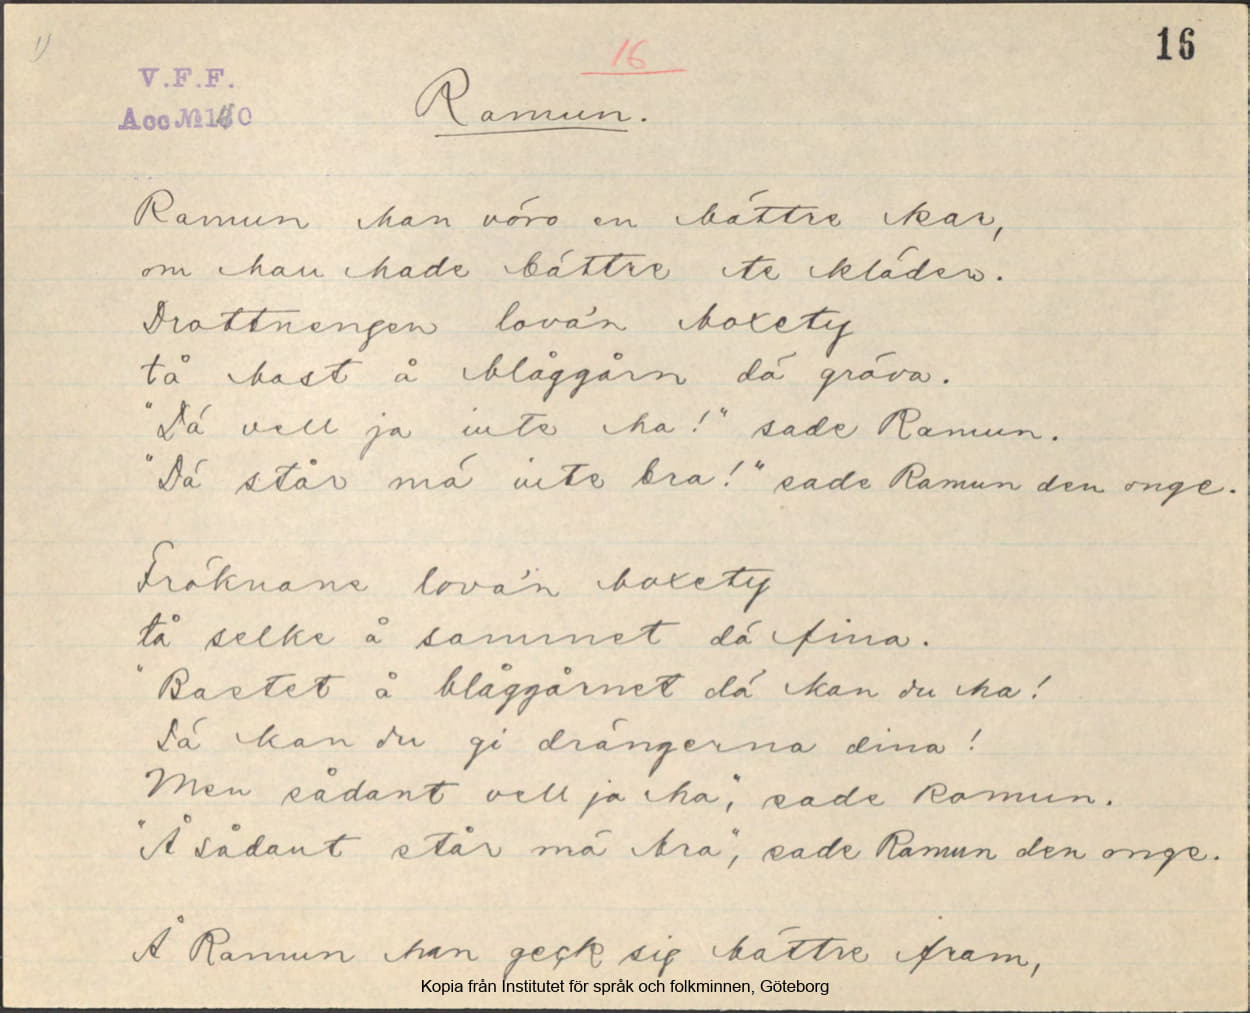 1)
16
16
V.F.F.
Acc № 1
Ramun.
Ramun han vóro en báttre kar,
om han hade báttre te kláder.
Drottnengen lova'n boxetÿ
tå bast å blåggårn dá gráva.
"Dá vell ja inte ha!" sade Ramun.
"Dá står má inte bra!" sade Ramun den onge.
Fróknane lova'n boxetÿ
tå selke å sammet dá fina.
"Bastet å blåggårnet dá kan du ha!
Dá kan du gi drángerna dina!
Men sådant vell ja ha", sade Ramun.
"Å sådant står má bra", sade Ramun den onge.
Å Ramun han geck sig báttre fram,
Kopia från Institutet för språk och folkminnen, Göteborg